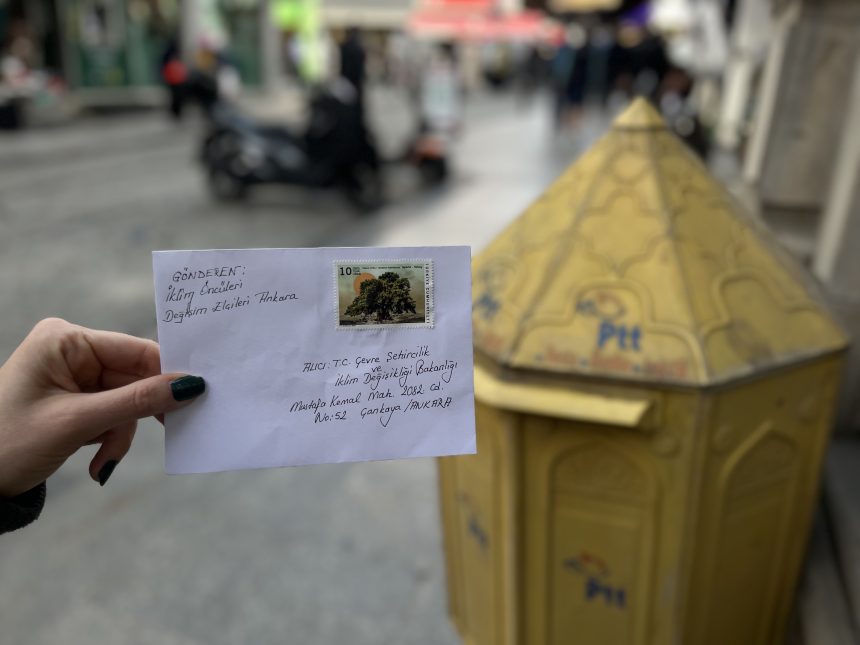 GÖNDEREN:
İklim Öncüleri
Değişim Elçileri Ankara
10
TÜRKİYE CUMHURİYETİ
ALICI: T.C. Çevre Şehircilik
ve
İklim Değişikliği Bakanlığı
Mustafa Kemal Mah. 2082 cd.
No:52 Çankaya/ANKARA
Ptt
Ptt